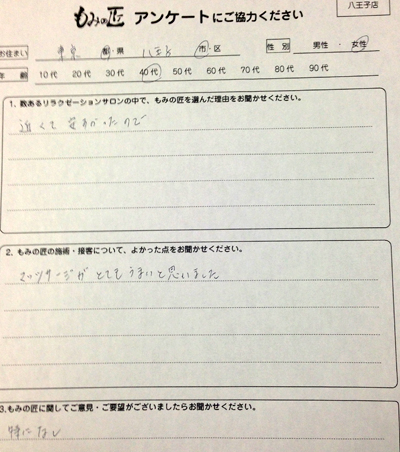 八王子店
もみの匠 アンケートにご協力ください
お住まい 東京 都・県 八王子 市・区 性別 男性・女性
年齢 10代 20代 30代 40代 50代 60代 70代 80代 90代
1、数あるリラクゼーションサロンの中で、もみの匠を選んだ理由をお聞かせください。
近くて安かったので
2、もみの匠の施術・接客について、よかった点をお聞かせください。
マッサージがとてもうまいと思いました
3.もみの匠に関してご意見・ご要望がございましたらお聞かせください。
特になし